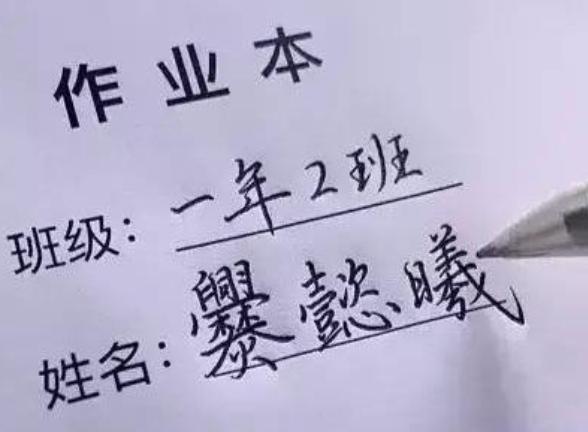 作业本
班级：一年2班
姓名：爨懿曦